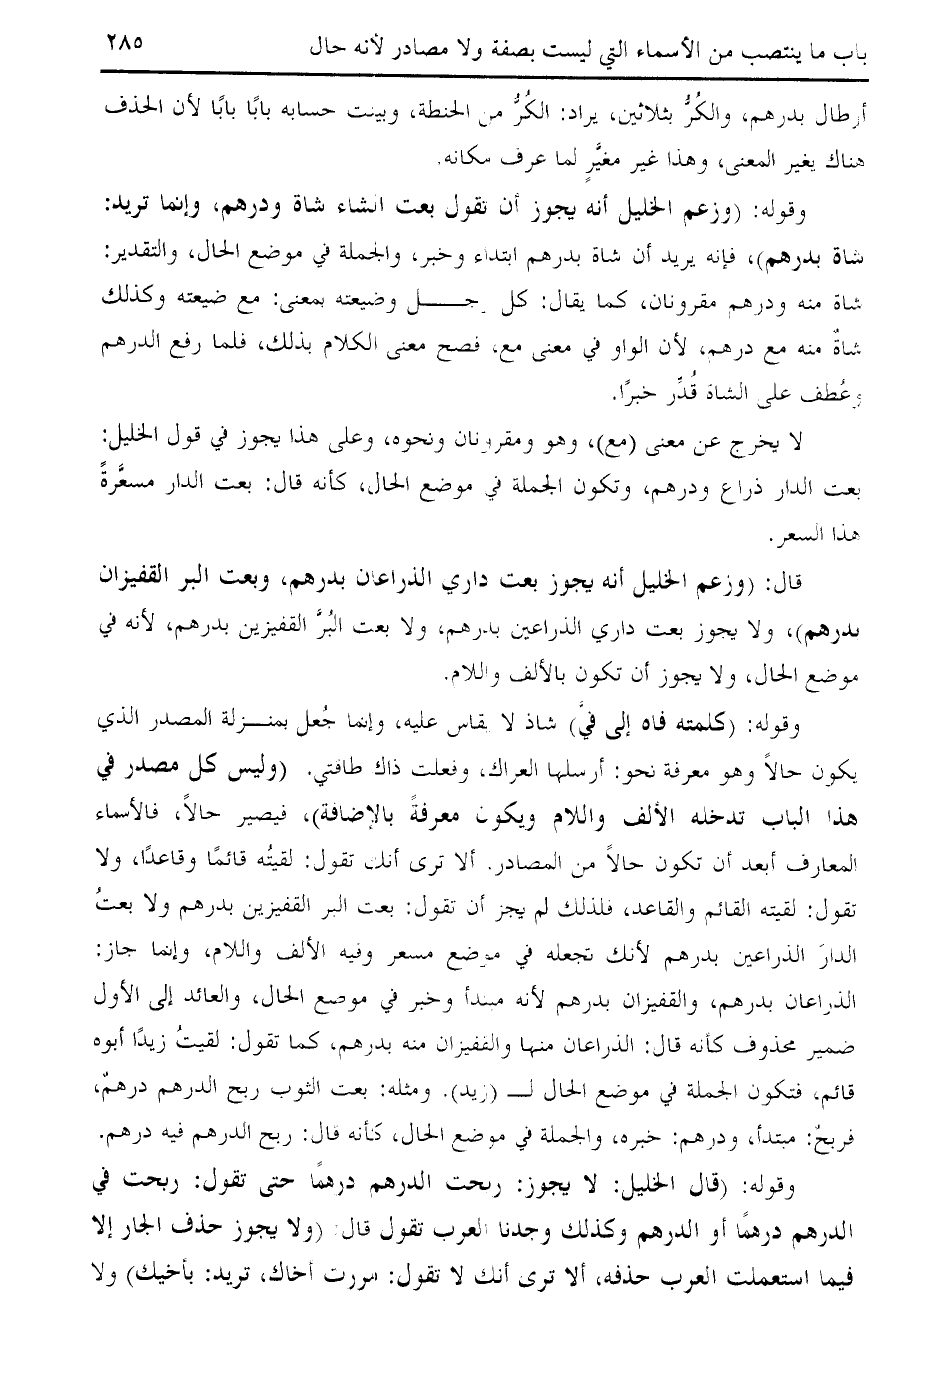 باب ما ينتصب من الأسماء التي ليست بصفة ولا مصادر لأنه حال ٢٨٥
أرطال بدرهم، والكُرُّ بثلاثين، يراد: الكُرُّ من الحنطة، وبينت حسابه بابًا بابًا لأن الحذف
هناك يغير المعنى، وهذا غير مغيَّرٍ لما عرف مكانه.
وقوله: (وزعم الخليل أنه يجوز أن تقول بعت الشاء شاة ودرهم، وإنما تريد:
شاة بدرهم)، فإنه يريد أن شاة بدرهم ابتداء وخبر، والجملة في موضع الحال، والتقدير:
شاة منه ودرهم مقرونان، كما يقال: كل رجـــــل وضيعته بمعنى: مع ضيعته وكذلك
شاةٌ منه مع درهم، لأن الواو في معنى مع، فصح معنى الكلام بذلك، فلما رفع الدرهم
وعُطف على الشاة قُدِّر خبرًا.
لا يخرج عن معنى (مع)، وهو ومقرونان ونحوه، وعلى هذا يجوز في قول الخليل:
بعت الدار ذراع ودرهم، وتكون الجملة في موضع الحال، كأنه قال: بعت الدار مسعَّرةً
هذا السعر.
قال: (وزعم الخليل أنه يجوز بعت داري الذراعان بدرهم، وبعت البر القفيزان
بدرهم)، ولا يجوز بعت داري الذراعين بدرهم، ولا بعت البُرَّ القفيزين بدرهم، لأنه في
موضع الحال، ولا يجوز أن تكون بالألف واللام.
وقوله: (كلمته فاه إلى فيَّ) شاذ لا يقاس عليه، وإنما جُعل بمنـــزلة المصدر الذي
يكون حالاً وهو معرفة نحو: أرسلها العراك، وفعلت ذاك طاقتي. (وليس كل مصدر في
هذا الباب تدخله الألف واللام ويكون معرفةً بالإضافة)، فيصير حالاً، فالأسماء
المعارف أبعد أن تكون حالاً من المصادر. ألا ترى أنك تقول: لقيتُه قائمًا وقاعدًا، ولا
تقول: لقيته القائم والقاعد، فلذلك لم يجز أن تقول: بعت البر القفيزين بدرهم ولا بعتُ
الدارَ الذراعين بدرهم لأنك تجعله في موضع مسعر وفيه الألف واللام، وإنما جاز:
الذراعان بدرهم، والقفيزان بدرهم لأنه مبتدأ وخبر في موضع الحال، والعائد إلى الأول
ضمير محذوف كأنه قال: الذراعان منها والقفيزان منه بدرهم، كما تقول: لقيتُ زيدًا أبوه
قائم، فتكون الجملة في موضع الحال لــ (زيد). ومثله: بعت الثوب ربح الدرهم درهمٌ،
فربحٌ: مبتدأ، ودرهم: خبره، والجملة في موضع الحال، كأنه قال: ربح الدرهم فيه درهم.
وقوله: (قال الخليل: لا يجوز: ربحت الدرهم درهمًا حتى تقول: ربحت في
الدرهم درهمًا أو الدرهم وكذلك وجدنا العرب تقول قال: (ولا يجوز حذف الجار إلا
فيما استعملت العرب حذفه، ألا ترى أنك لا تقول: مررت أخاك، تريد: بأخيك) ولا